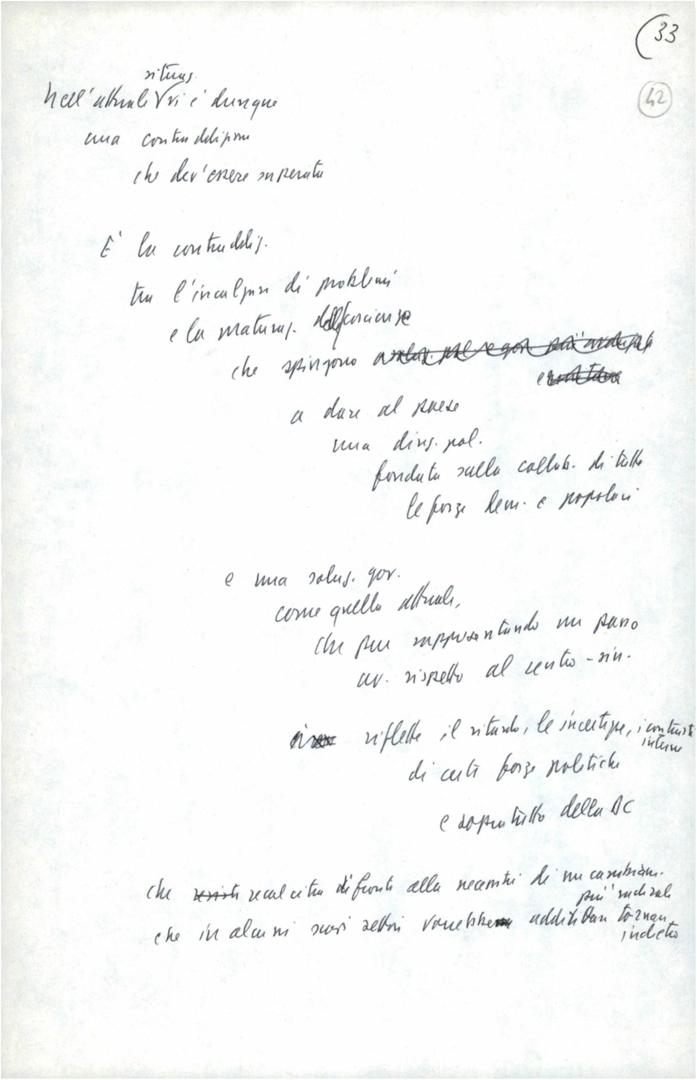 33
42
situaz.
Nell'attuale V vi è dunque
una contraddizione
che dev'essere superata
È la contraddiz.
tra l'incalzare di problemi
e la maturaz. delle coscienze
che spingono
e
a dare al paese
una direz. pol.
fondata sulla collab. di tutte
le forze dem. e popolari
e una soluz. gov.
come quella attuale,
che pur rappresentando un passo
av. rispetto al centro-sin.
riflette il ritardo, le incertezze, i contrasti
interni
di certe forze politiche
e soprattutto della DC
che resiste recalcitra di fronte alla necessità di un cambiam.
più radicale
che in alcuni suoi settori vorrebbe addirittura tornare
indietro